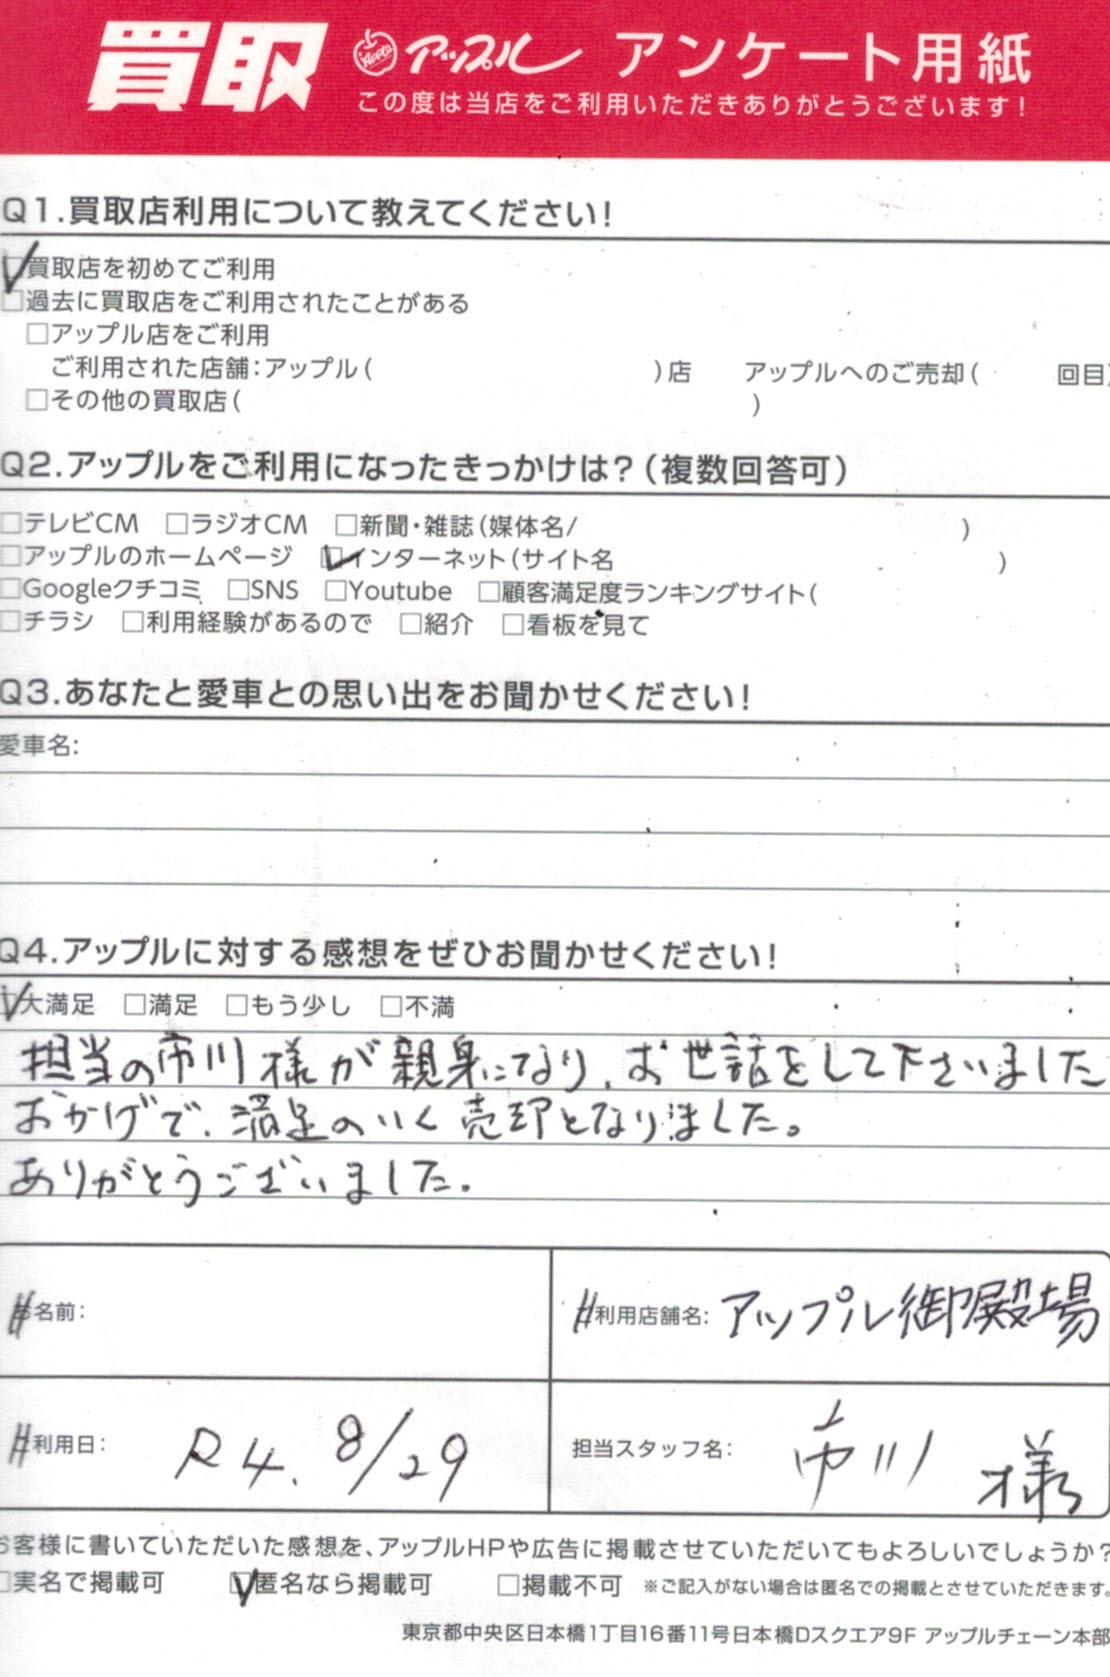 買取 アップル アンケート用紙
この度は当店をご利用いただきありがとうございます!
Q1.買取店利用について教えてください!
買取店を初めてご利用
□過去に買取店をご利用されたことがある
□アップル店をご利用
ご利用された店舗:アップル( )店 アップルへのご売却( 回目)
□その他の買取店( )
Q2.アップルをご利用になったきっかけは?(複数回答可)
□テレビCM □ラジオCM □新聞・雑誌(媒体名/ )
□アップルのホームページ インターネット(サイト名 )
□Googleクチコミ □SNS □Youtube □顧客満足度ランキングサイト(
□チラシ □利用経験があるので □紹介 □看板を見て
Q3.あなたと愛車との思い出をお聞かせください!
愛車名:
Q4.アップルに対する感想をぜひお聞かせください!
大満足 □満足 □もう少し □不満
担当の市川様が親身になり、お世話をして下さいました
おかげで、満足のいく売却となりました。
ありがとうございました。
名前:
利用店舗名: アップル御殿場
利用日: R4. 8/29
担当スタッフ名: 市川 様
お客様に書いていただいた感想を、アップルHPや広告に掲載させていただいてもよろしいでしょうか?
□実名で掲載可 匿名なら掲載可 □掲載不可 ※ご記入がない場合は匿名での掲載とさせていただきます。
東京都中央区日本橋1丁目16番11号日本橋Dスクエア9F アップルチェーン本部